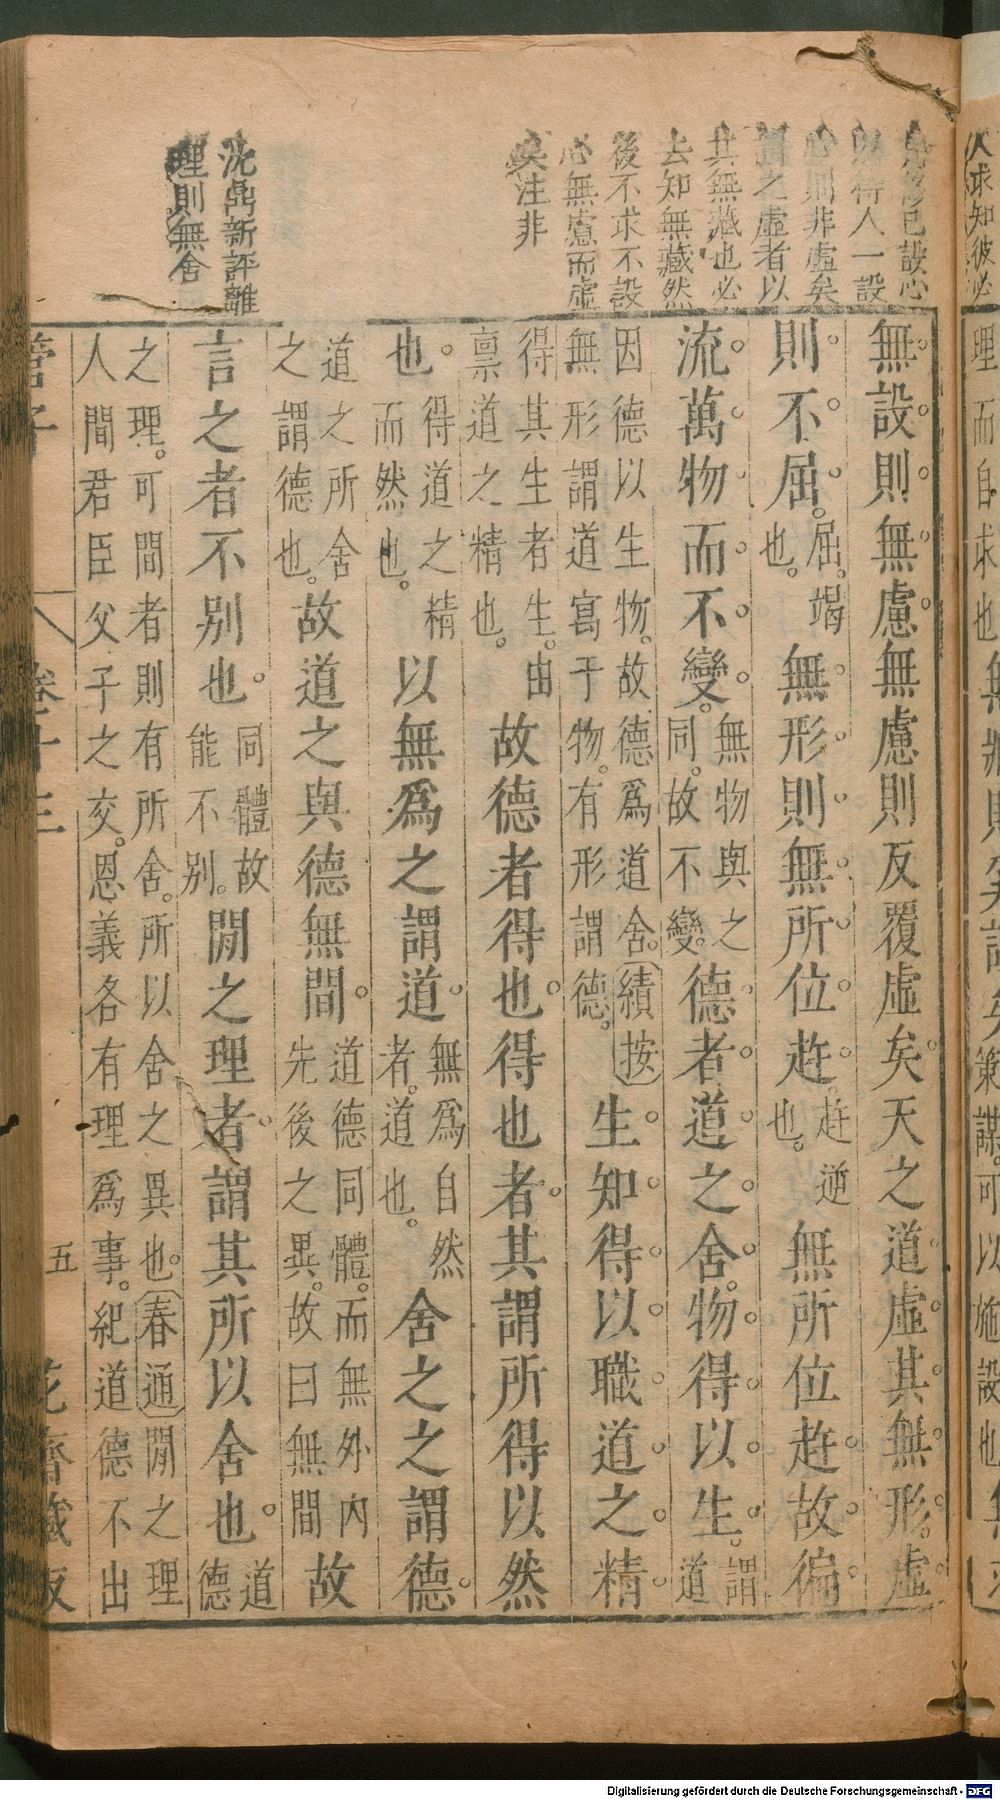 人求知彼必
理而自求也
無設則無慮無慮則反覆虛矣天之道虛其無形虛
則不屈屈竭也無形則無所位䟓䟓逆也無所位䟓故徧
流萬物而不變無物與之同故不變德者道之舍物得以生謂道
因德以生物故德爲道舍績按無形謂道寓于物有形謂德生知得以職道之精
得其生者生由稟道之精也故德者得也得也者其謂所得以然
也得道之精而然也以無爲之謂道無爲自然者道也舍之之謂德
道之所舍之謂德也故道之與德無間道德同體而無外內先後之異故曰無間故
言之者不別也同體故能不別閒之理者謂其所以舍也道德
之理可間者則有所舍所以舍之異也春通閒之理人間君臣父子之交恩義各有理爲事紀道德不出
管子 卷十三 五 花齋藏板
已設心
待人一設
心則非虛矣
之虛者以
其無藏也必
去知無藏然
後不求不設
心無慮而虛
矣注非
沈鼎新評離
理則無舍
Digitalisierung gefördert durch die Deutsche Forschungsgemeinschaft - DFG